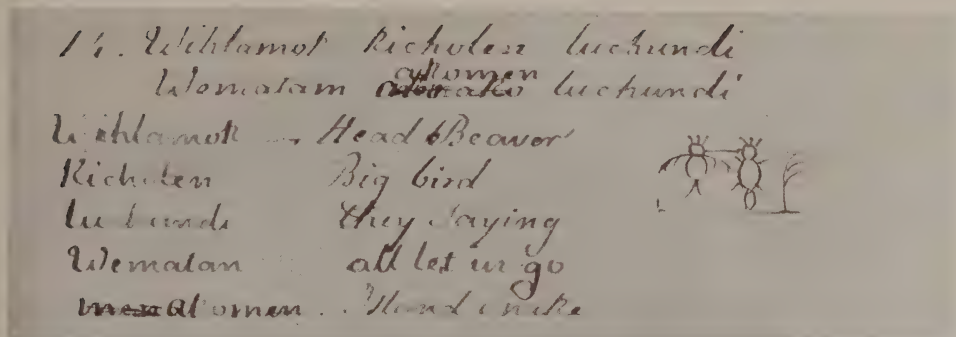 14. Wihlamok Kicholen luchundi
Wematam akomen luchundi
Wihlamok Head Beaver
Kicholen Big bird
luchundi they saying
Wematan all let us go
akomen